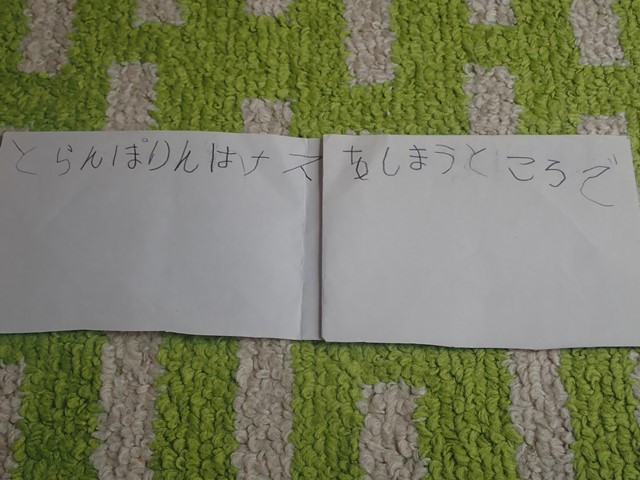 とらんぽりんはナスをしまうところで